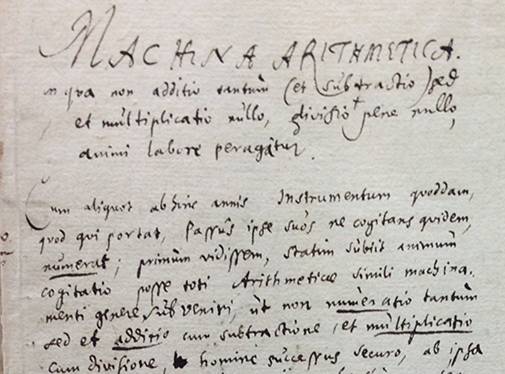 MACHINA ARITHMETICA.
in qva non additio tantum (et subtractio) sed
et multiplicatio nullo, divisio pene nullo,
animi labore peragatur.
Cum aliquot abhinc annis Instrumentum quoddam,
quod qui portat, passus ipse suos ne cogitans quidem,
numerat; primum vidissem, statim subiit animum
cogitatio posse toti Arithmeticæ simili machina-
menti genere subveniri, ut non numeratio tantum
sed et additio cum subtractione, et multiplicatio
cum divisione, homine successus securo, ab ipsa